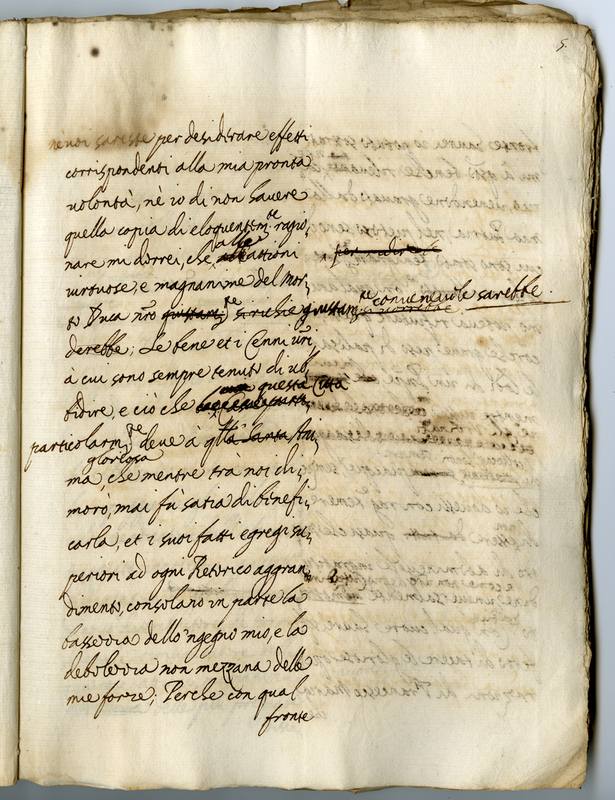 5.
nè voi sareste per desiderare effetti
corrispondenti alla mia pronta
volontà, nè io di non havere
quella copia di eloquentem.te ragio,
nare mi dorrei, che alle attioni
virtuose, e magnanime del mor,
to Duca nro giustam.te conveneuole sarebbe.
derebbe; Le bene et i Cenni vri,
à cui sono sempre tenuto di ub,
bidire, e ciò che questa Città
particolarm.te deve à qlla santa Ani,
gloriosa
ma, che mentre trà noi di,
morò, mai fu satia di benefi,
carla, et i suoi fatti egregi su,
periori ad ogni Retorico aggran,
dimento, consolano in parte la
bassezza dello 'ngegno mio, e la
debolezza non mezzana delle
mie forze; Perche con qual
fronte